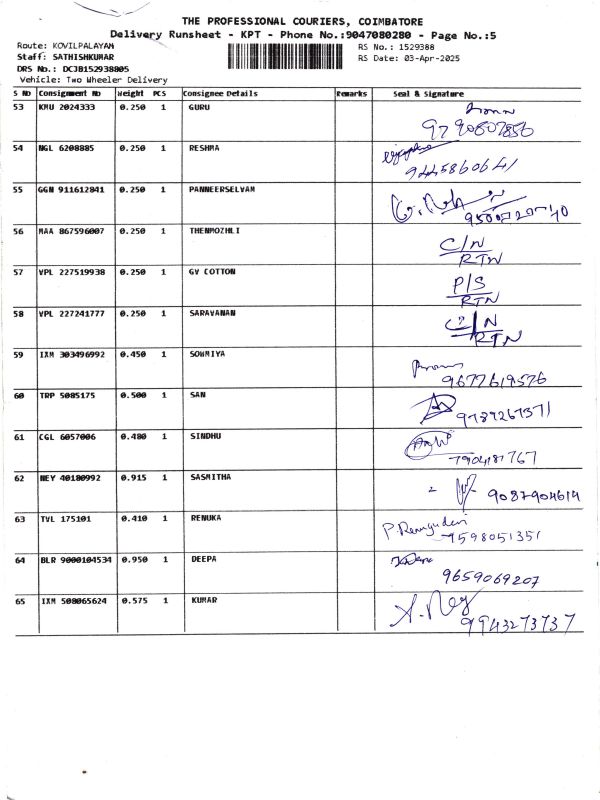 THE PROFESSIONAL COURIERS, COIMBATORE
Delivery Runsheet - KPT - Phone No.:9047080280 - Page No.:5
Route: KOVILPALAYAM RS No.: 1529388
Staff: SATHISHKUMAR RS Date: 03-Apr-2025
DRS No.: DCJB152938805
Vehicle: Two Wheeler Delivery
S No Consignment No Weight PCS Consignee Details Remarks Seal & Signature
53 KMU 2024333 0.250 1 GURU
9790807856
54 NGL 6208885 0.250 1 RESHMA
9445860641
55 GGN 911612841 0.250 1 PANNEERSELVAM
56 MAA 867596007 0.250 1 THENMOZHLI C/N
RTN
57 VPL 227519938 0.250 1 GV COTTON P/S
RTN
58 VPL 227241777 0.250 1 SARAVANAN C/N
RTN
59 IXM 303496992 0.450 1 SOWMIYA
9677619576
60 TRP 5085175 0.500 1 SAN
9789267371
61 CGL 6057006 0.480 1 SINDHU
7904181767
62 NEY 40180992 0.915 1 SASMITHA
9087904614
63 TVL 175101 0.410 1 RENUKA P. Renugadevi
9598051351
64 BLR 9000104534 0.950 1 DEEPA
9659069207
65 IXM 508065624 0.575 1 KUMAR
9943273737